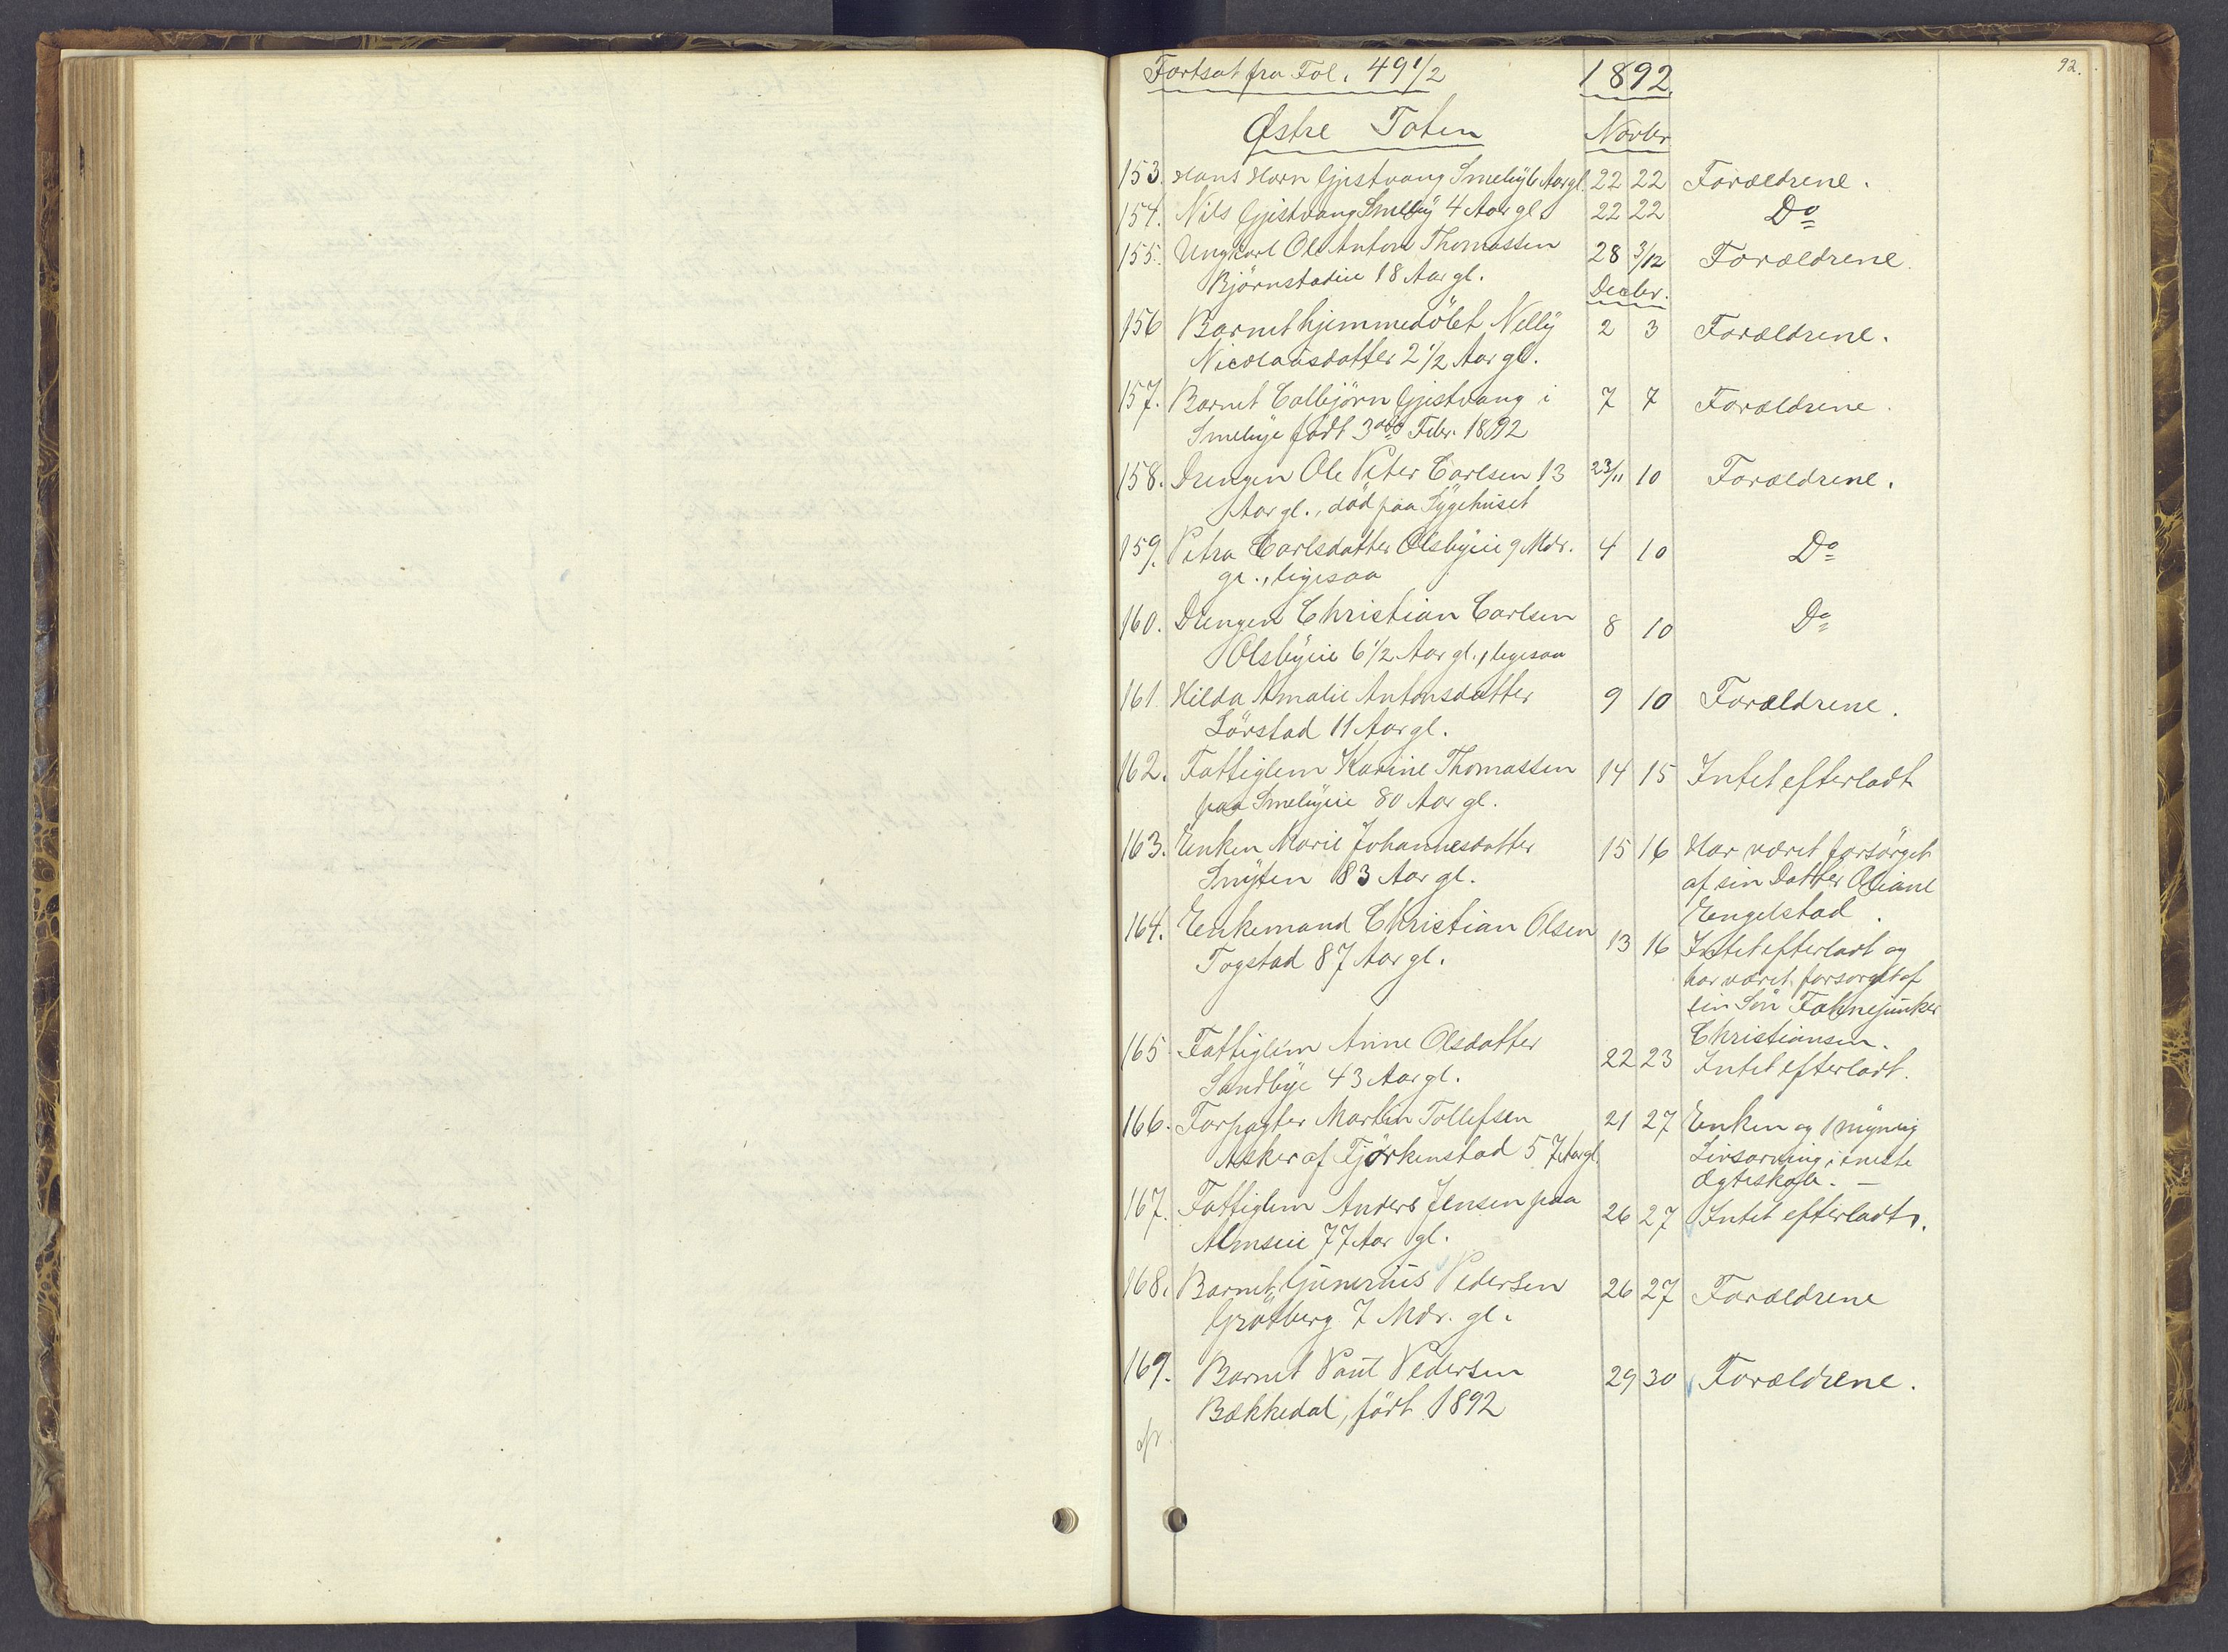 Fortsat fra Fol. 49 1/2 1892. 92.
Østre Toten Novbr
153. Hans Horn Gjestvang Smebÿ 6 Aar gl. 22 22 Forældrene.
154. Nils Gjestvang Smebÿ 4 Aar gl. 22 22 Do
155. Ungkarl Ole Anton Thomassen 28 3/12 Forældrene.
Björnstadeie 18 Aar gl. Decbr.
156 Barnet hjemmedöbt Nellÿ 2 3 Forældrene.
Nicolaisdatter 2 1/2 Aar gl.
157. Barnet Colbjörn Gjestvang i 7 7 Forældrene.
Smebÿe födt 3die Febr. 1892
158. Drengen Ole Peter Carlsen 13 23/11 10 Forældrene.
Aar gl., död paa Sÿgehuset
159. Petra Carlsdatter Olsbÿeie 9 Mdr. 4 10 Do
gl., ligesaa
160. Drengen Christian Carlsen 8 10 Do
Olsbÿeie 6 1/2 Aar gl., ligesaa
161 Hilda Amalie Antonsdatter 9 10 Forældrene.
Sörstad 11 Aar gl.
162. Fattiglem Karine Thomassen 14 15 Intet efterladt
paa Smebÿeie 80 Aar gl.
163. Enken Marie Johannesdatter 15 16 Har været forsörget
Snÿten 83 Aar gl. af sin Datter Oliane
Engelstad.
164. Enkemand Christian Olsen 13 16 Intet efterladt og
Togstad 87 Aar gl. har været forsorget af
sin Sön Fahnejunker
Christiansen.
165 Fattiglem Anne Olsdatter 22 23 Intet efterladt.
Sandbÿe 43 Aar gl.
166. Forpagter Martin Tollefsen 21 27 Enken og 1 mÿndig
Asker af Fjörkenstad 57 Aar gl. Livsarving i eneste
Ægteskab. —
167. Fattiglem Anders Jensen paa 26 27 Intet efterladt.
Almseie 77 Aar gl.
168. Barnet Gunerius Pedersen 26 27 Forældrene
Grötberg 7 Mdr. gl.
169. Barnet Paul Pedersen 29 30 Forældrene.
Bækkedal, födt 1892